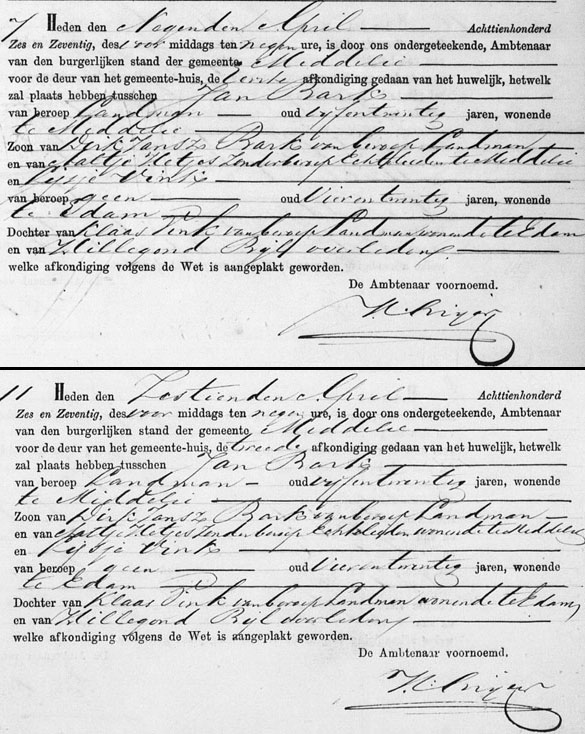 7 Heden den Negenden April Achttienhonderd
Zes en Zeventig, des voor middags ten negen ure, is door ons ondergeteekende, Ambtenaar
van den burgerlijken stand der gemeente Middelie
voor de deur van het gemeente-huis, de eerste afkondiging gedaan van het huwelijk, hetwelk
zal plaats hebben tusschen Jan Bark
van beroep Landman oud vijfentwintig jaren, wonende
te Middelie
Zoon van Dirk Jansz Bark van beroep Landman
en van zonder beroep Echtelieden te Middelie
en Vink
van beroep geen oud Vierentwintig jaren, wonende
te Edam
Dochter van Klaas Vink van beroep Landman wonende te Edam
en van Hillegond Bijl overleden
welke afkondiging volgens de Wet is aangeplakt geworden.
De Ambtenaar voornoemd.
11 Heden den Zestienden April Achttienhonderd
Zes en Zeventig, des voor middags ten negen ure, is door ons ondergeteekende, Ambtenaar
van den burgerlijken stand der gemeente Middelie
voor de deur van het gemeente-huis, de tweede afkondiging gedaan van het huwelijk, hetwelk
zal plaats hebben tusschen Jan Bark
van beroep Landman oud vijfentwintig jaren, wonende
te Middelie
Zoon van Dirk Jansz Bark van beroep Landman
en van zonder beroep Echtelieden wonende te Middelie
en Vink
van beroep geen oud Vierentwintig jaren, wonende
te Edam
Dochter van Klaas Vink van beroep Landman wonende te Edam
en van Hillegond Bijl overleden
welke afkondiging volgens de Wet is aangeplakt geworden.
De Ambtenaar voornoemd.